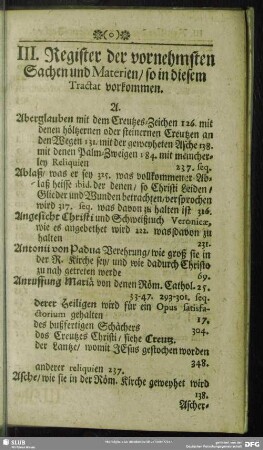 ❧(o)❧
III. Register der vornehmsten
Sachen und Materien / so in diesem
Tractat vorkommen.
A.
Aberglauben mit dem Creutzes-Zeichen 126. mit
denen höltzernen oder steinernen Creutzen an
den Wegen 131. mit der geweyheten Asche 138.
mit denen Palm-Zweigen 184. mit mancher-
ley Reliquien 237. seq.
Ablaß / was er sey 315. was vollkommener Ab-
laß heisse ibid. der denen / so Christi Leiden /
Glieder und Wunden betrachten / versprochen
wird 317. seq. was davon zu halten ist 316.
Angesicht Christi und Schweißtuch Veronicæ,
wie es angebethet wird 222. was davon zu
halten 231.
Antonii von Padua Verehrung / wie groß sie in
der R. Kirche sey / und wie dadurch Christo
zu nah getreten werde 69.
Anruffung Mariä von denen Röm. Cathol. 25.
33-47. 293-301. seq.
derer Heiligen wird für ein Opus satisfa-
ctorium gehalten 17.
des bußfertigen Schächers 394.
des Creutzes Christi / siehe Creutz.
der Lantze / womit JEsus gestochen worden
348.
anderer reliquien 237.
Asche / wie sie in der Röm. Kirche geweyhet wird
138.
Ascher-
SLUB